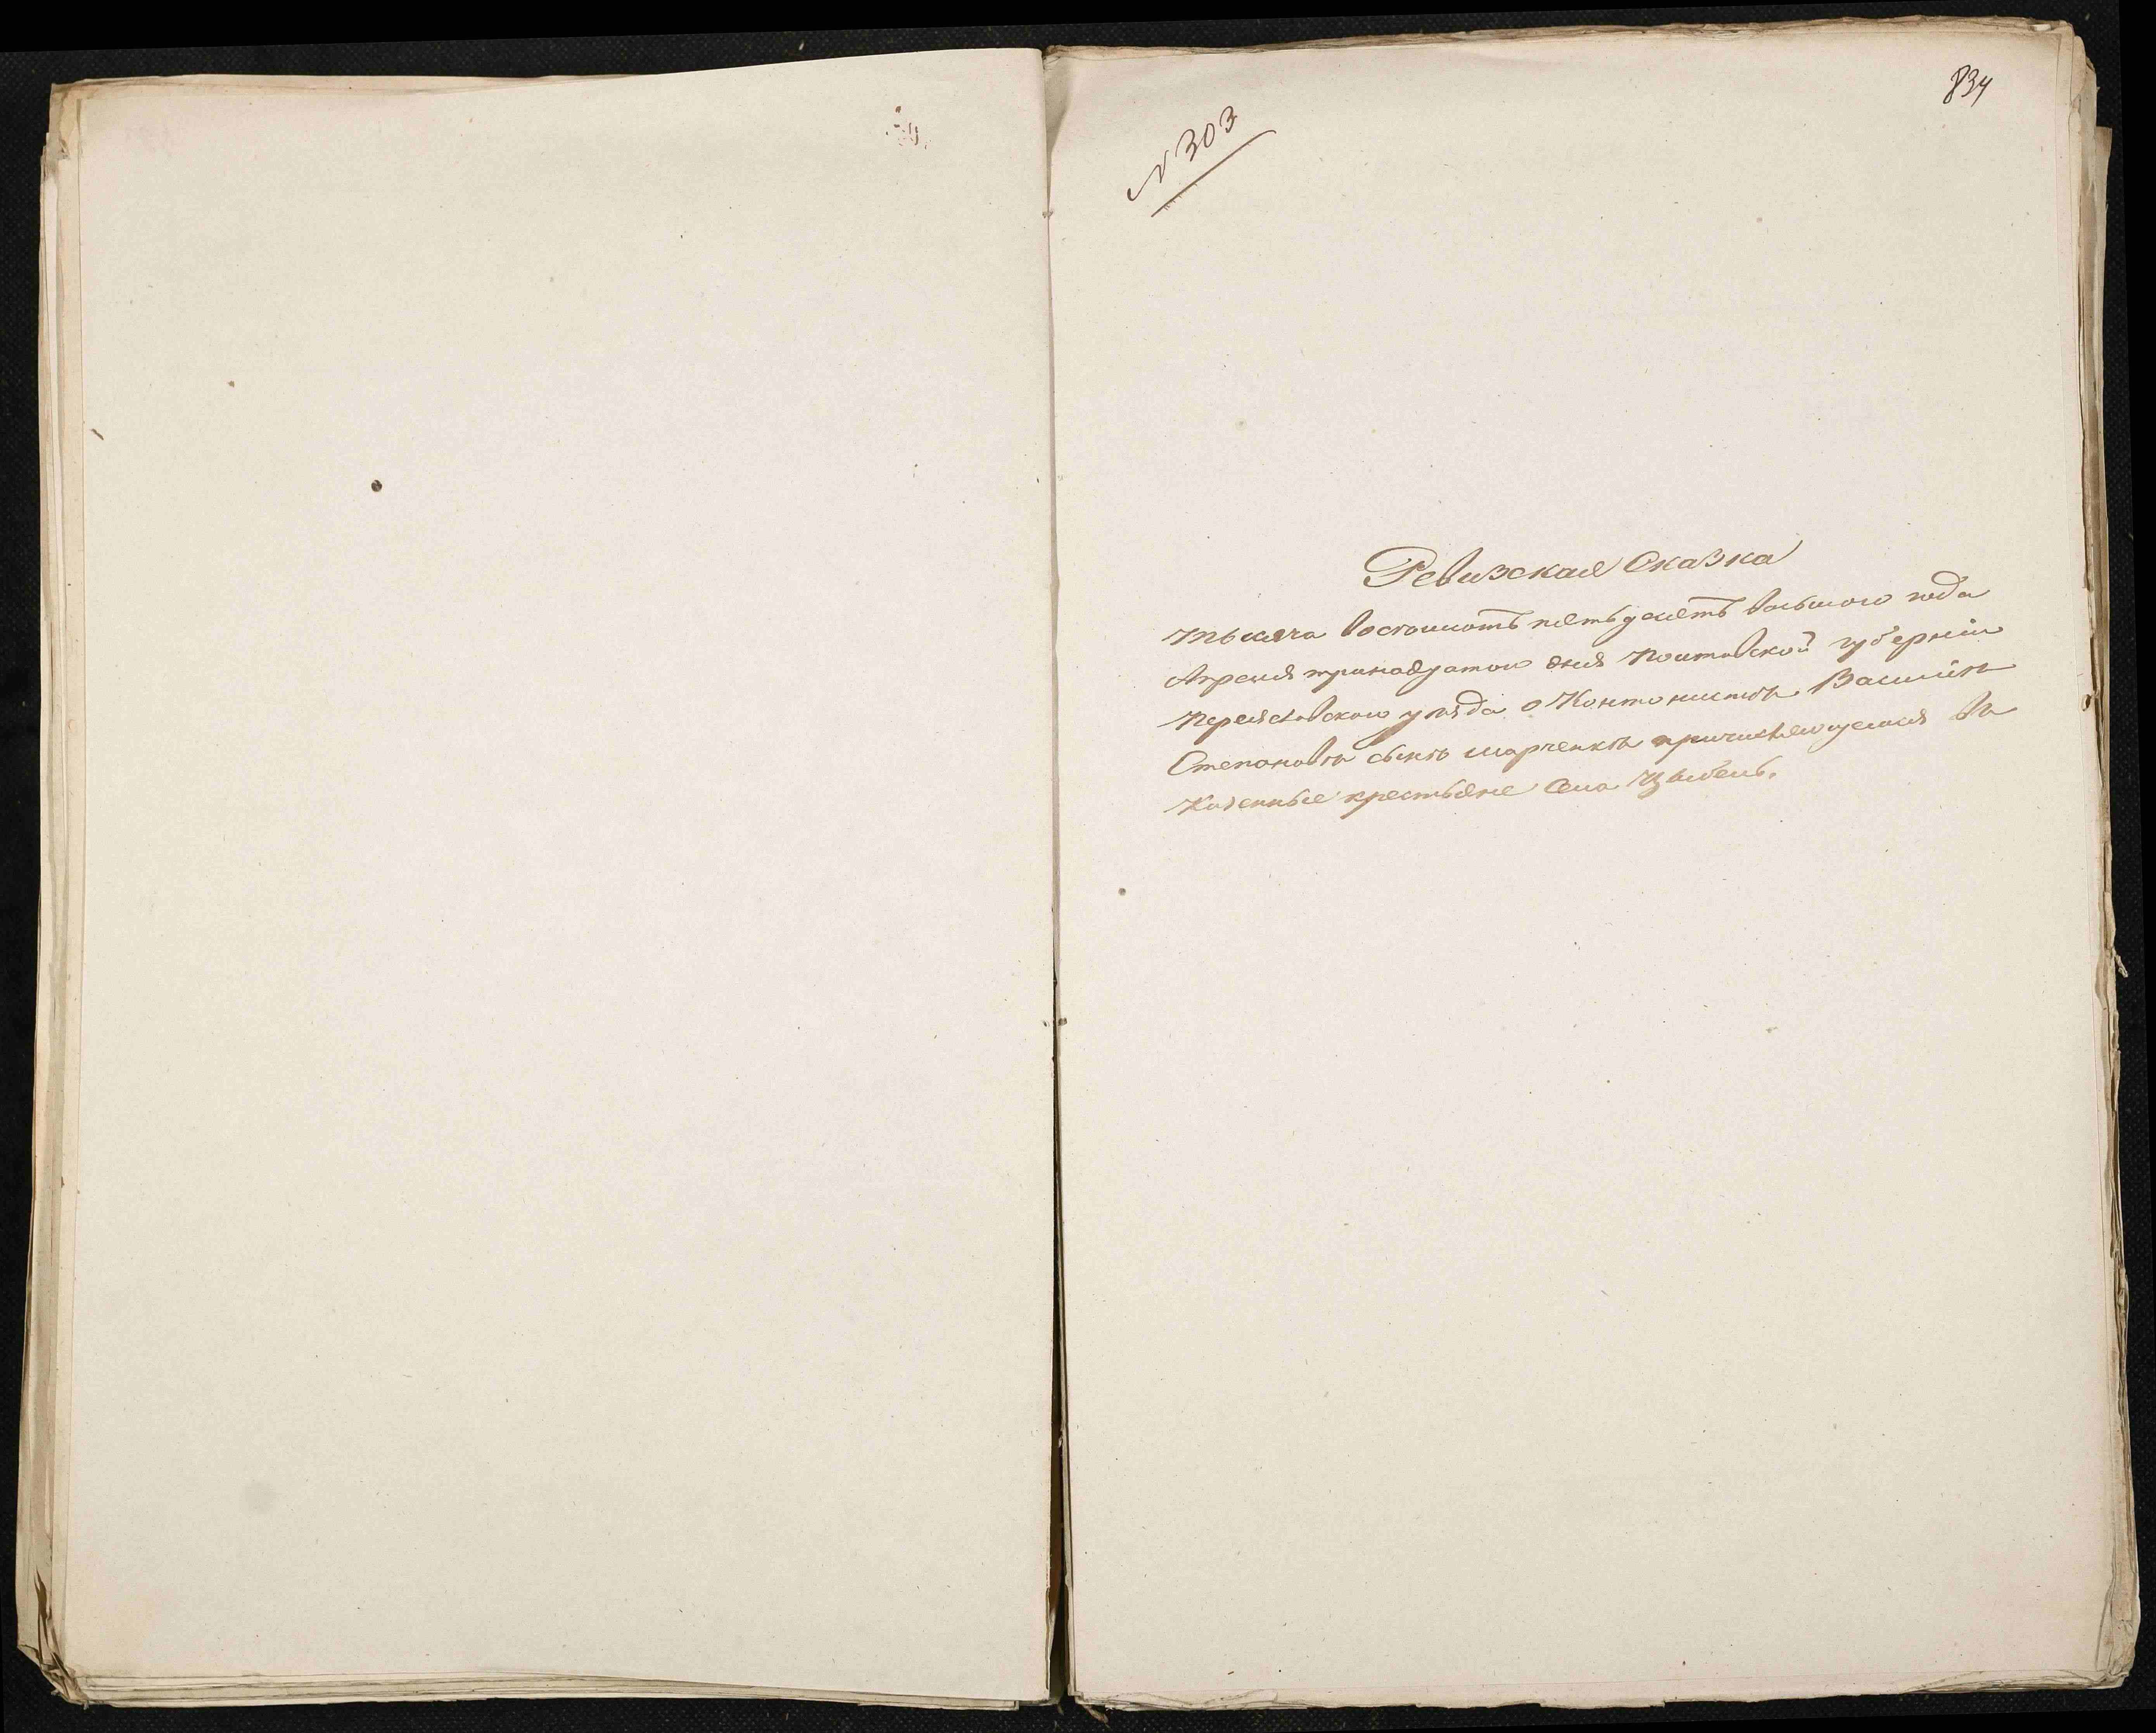 834
N 303
Ревизская Сказка
тысяча восемьсотъ пятьдесятъ восьмого года
Апреля тринадцатого дня Полтавской губернiи
Переяславского уезда о Кантонисте Василiе
Степанове сыне Марченке причисляющемся въ
Казенные крестьяне Села Цыбель.